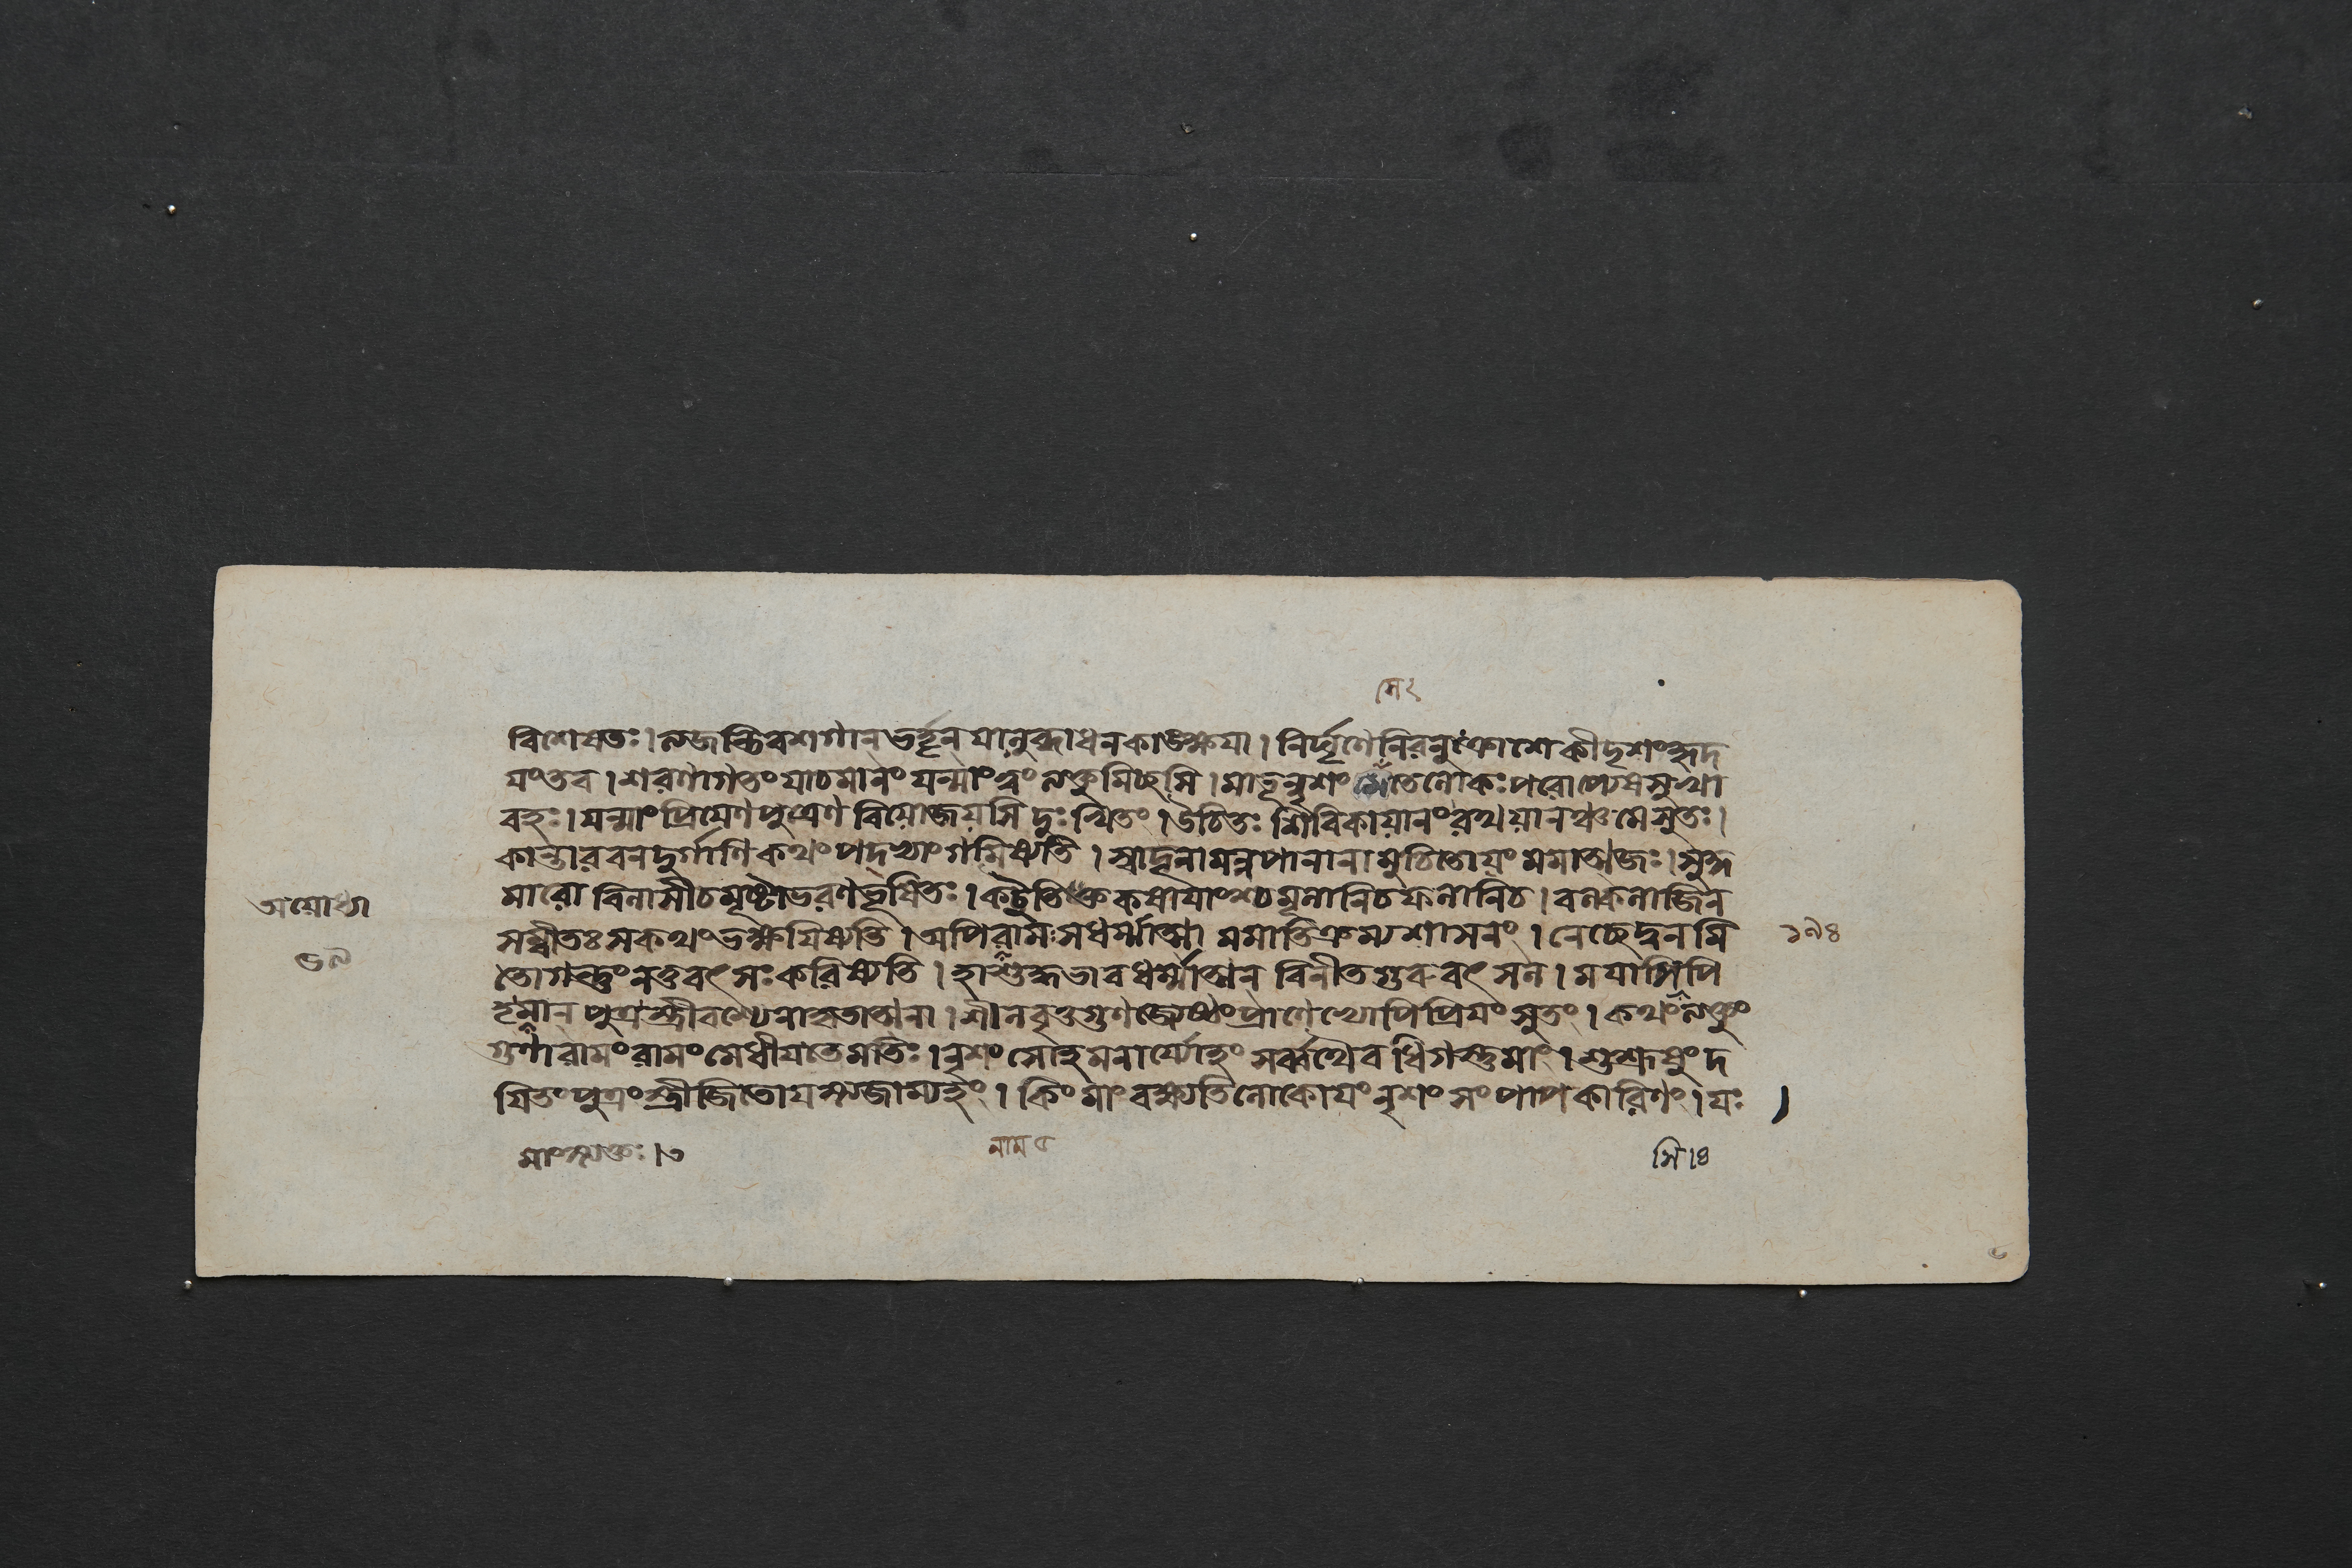 সি ২
বিশেষতঃ।ত্যজন্তিবশগান্ভর্তৃন্যানুব্ধাধনকাঙ্ক্ষয়া। নির্ঘৃণেনিরনুক্রোশেকীদৃশংহৃদ
য়ংতব। শরণাগতংযাচমানং যন্মাংত্বংত্যক্তুমিচ্ছসি।মাতৃনৃশং তেলোকঃপরোপ্যেষসুখা
বহঃ।যন্মাংপ্রিয়েণপুত্রেণ বিয়োজয়সি দুঃখিতং। উচিতঃ শিবিকাযানংরথযানঞ্চমেসুতঃ।
কান্তারবনদুর্গাণিকথংপদ্ভ্যাংগমিষ্যতি। স্বাদূনামন্নপানানামুচিতোয়ং মমাত্মজঃ।সুকু
মারো বিলাসীচমৃষ্টাভরণভূষিতঃ। কটুতিক্তকষায়াংশ্চমূলানিচফলানিচ। বল্কলাজিন
সম্বীতঃসকথংভক্ষয়িষ্যতি। অপিরামঃসধর্ম্মাত্মা মমাতিক্রম্যশাসনং। নেচ্ছেদ্বনমি
তোগন্তুংনতুবৎসঃকরিষ্যতি। হাশুদ্ধভাবধর্ম্মাত্মন্ বিনীতগুরুবৎসল। ময়াসিপি
তৃমান্ পুত্রস্ত্রীবশ্যেনাকৃতাত্মনা। শীলবৃত্তগুণজ্যেষ্ঠংপ্রাণেভ্যোপিপ্রিয়ংসুতং। কথংত্যক্তুং
গুণারামংরামংমেধীয়তেমতিঃ।নৃশংসোহমনার্য্যোহং সর্ব্বথৈবধিগস্তুমাং। শুশ্রূষুংদ
য়িতংপুত্রংস্ত্রীজিতোযস্ত্যজাম্যহং। কিংমাংবক্ষ্যতিলোকোয়ংনৃশংসংপাপকারিণং। যঃ
অয়োধ্যা
১৭৪
মাংত্যক্তঃ।৩
নাম ৫
সি।৪